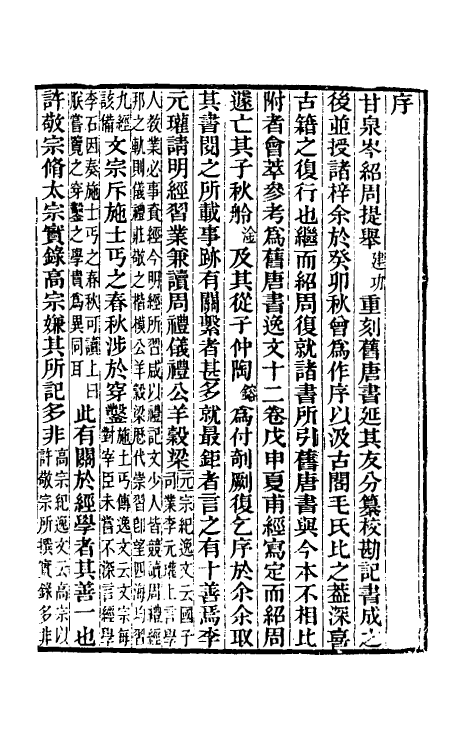 序
甘泉岑紹周提舉建功重刻舊唐書延其友分纂校勘記書成之
後並授諸梓余於癸卯秋曾爲作序以汲古閣毛氏比之葢深喜
古籍之復行也繼而紹周復就諸書所引舊唐書與今本不相比
附者會萃參考爲舊唐書逸文十二卷戊申夏甫經寫定而紹周
遽亡其子秋舲淦及其從子仲陶鎔爲付剞劂復乞序於余余取
其書閱之所載事跡有關繫者甚多就最鉅者言之有十善焉李
元瓘請明經習業兼讀周禮儀禮公羊穀梁元宗紀逸文云國子司業李元瓘上言學
人敎業必事資經今明經所習咸以禮記文少人皆競讀周禮經邦之軌則儀禮莊敬之楷模公羊穀梁歷代崇習卽望四海均習
九經該備文宗斥施士丐之春秋涉於穿鑿施士丐傳逸文云文宗每對宰臣未嘗不深言經學
李石因奏施士丐之春秋可讀上曰朕嘗覽之穿鑿之學貴爲異同耳此有關於經學者其善一也
許敬宗脩太宗實錄高宗嫌其所記多非高宗紀逸文云高宗以許敬宗所撰實錄多非